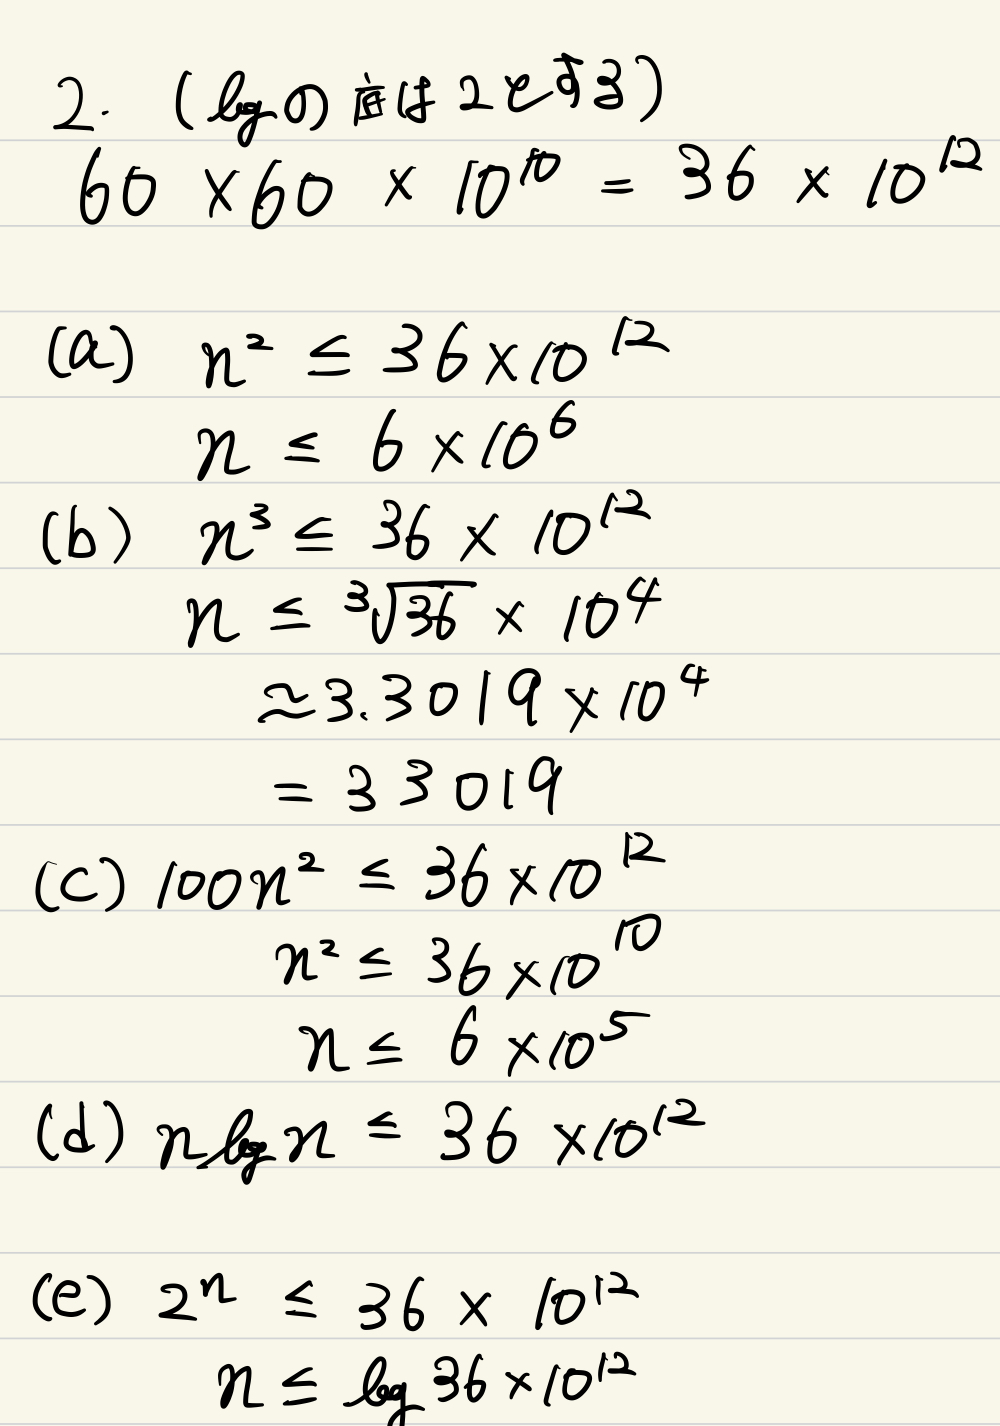 2. (logの底は2とする)
60 × 60 × 10^10 = 36 × 10^12
(a) n² ≤ 36 × 10^12
n ≤ 6 × 10^6
(b) n³ ≤ 36 × 10^12
n ≤ ³√36 × 10^4
≈ 3.3019 × 10^4
= 33019
(c) 100n² ≤ 36 × 10^12
n² ≤ 36 × 10^10
n ≤ 6 × 10^5
(d) n log n ≤ 36 × 10^12
(e) 2^n ≤ 36 × 10^12
n ≤ log 36 × 10^12